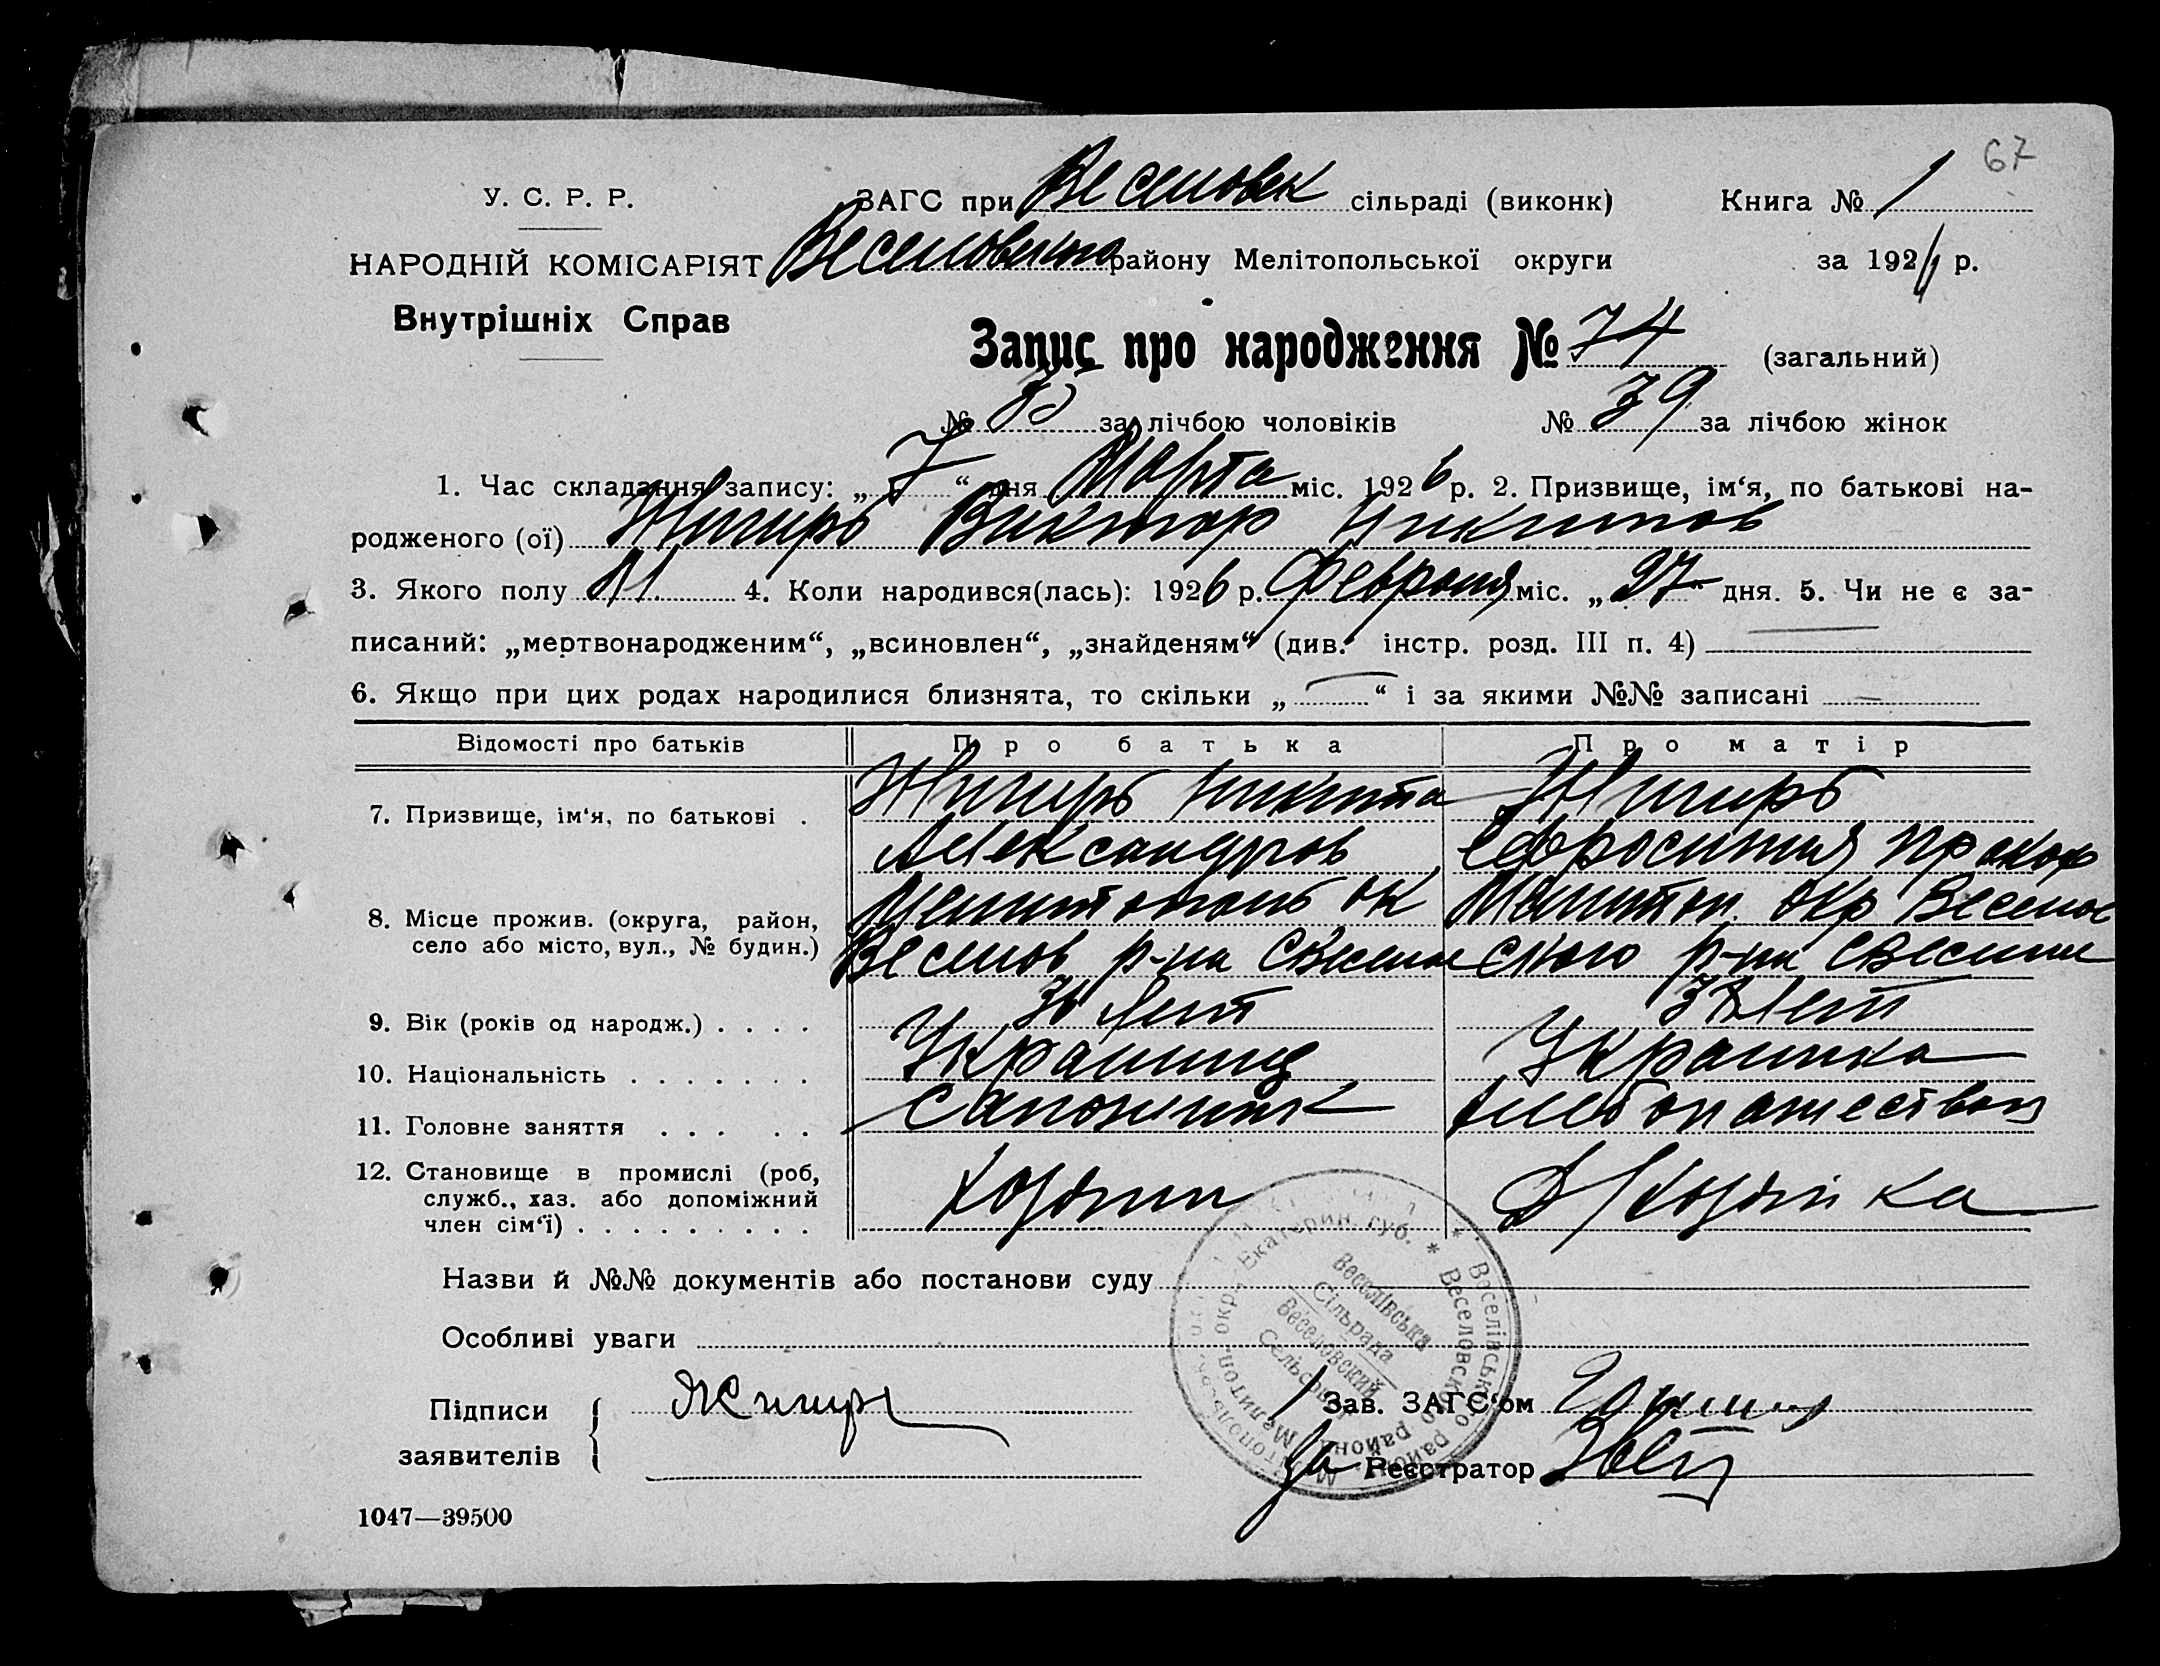 67
У. С. Р. Р.
ЗАГС при Веселовск сільраді (виконк) Книга № 1
НАРОДНІЙ КОМІСАРІЯТ
Веселовского району Мелітопольської округи за 1926 р.
Внутрішніх Справ
Запис про народження № 74 (загальний)
№ 35 за лічбою чоловіків № 39 за лічбою жінок
1. Час складання запису: „ 7 “ дня Марта міс. 1926 р. 2. Призвище, ім‘я, по батькові на-
родженого (ої) Жигирь Виктор Никитов
3. Якого полу М. 4. Коли народився(лась): 1926 р. Февраля міс. „ 27 “ дня. 5. Чи не є за-
писаний: „мертвонародженим“, „всиновлен“, „знайденям“ (див. інстр. розд. III п. 4)
6. Якщо при цих родах народилися близнята, то скільки „ “ і за якими №№ записані
Відомості про батьків Про батька Про матір
7. Призвище, ім‘я, по батькові . Жигирь Никита Жигирь
Александров Ефросиния Прокоф
8. Місце прожив. (округа, район, Мелитополь ок Мелитоп. окр Весело
село або місто, вул., № будин.) Веселов р-на с Весело ского р-на с Весели
9. Вік (років од народж.) . . . . 36 лет лет
10. Національність . . . . . . . Украинец Украинка
11. Головне заняття . . . . . Сапожник хлебопашество
12. Становище в промислі (роб,
служб., хаз. або допоміжний Хозяин Д/Хозяйка
член сім‘ї) . . . . . . . . .
Назви й №№ документів або постанови суду
Особливі уваги
Веселівська
Сільрада
Веселовский
Сельсовет
Екатерин. губ. * Веселовского района Мелитоп. окр.
Веселівського району
Підписи
заявителів
Жигирь
Зав. ЗАГС‘ом
За Реєстратор
1047—39500